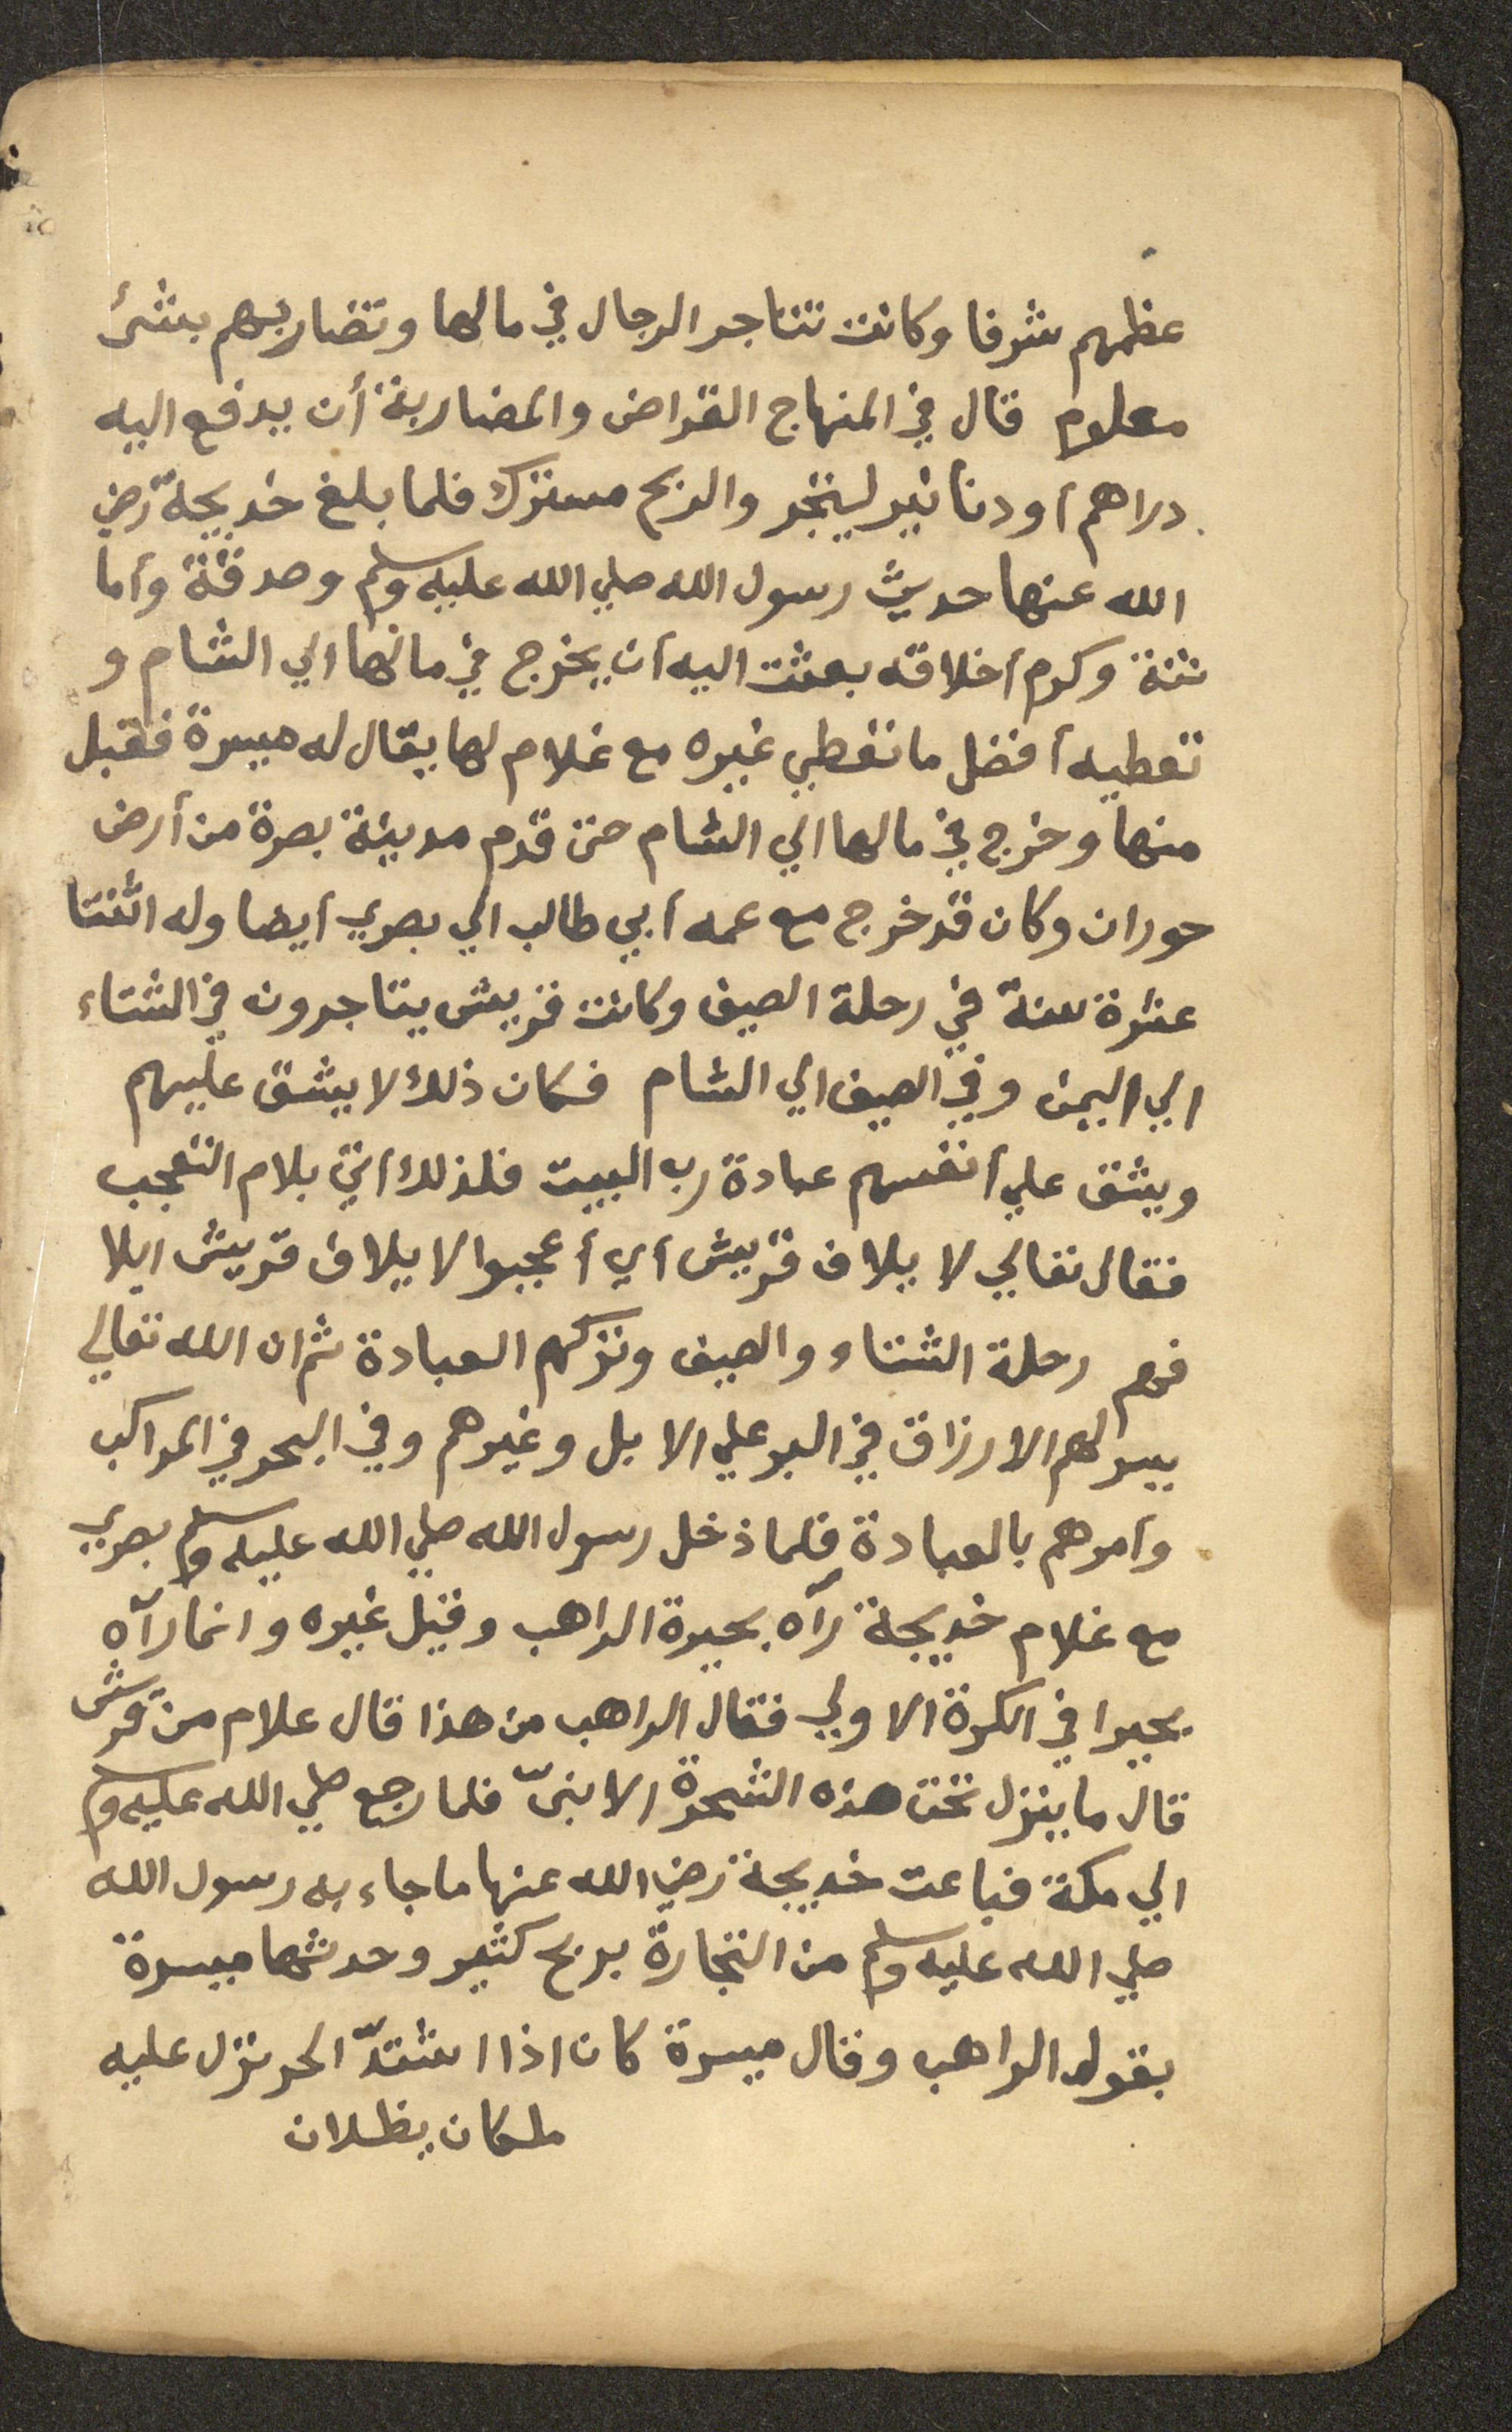 عظمهم شرفا وكانت تتاجر الرجال في مالها وتضاربهم بشئ
معلوم قال في المنهاج القراض والمضاربة أن يدفع اليه
دراهم أو دنانير ليتجر والربح مسترك فلما بلغ خديجة رضي
الله عنها حديث رسول الله صلي الله عليه وسلم وصدقة وأما
نتة وكرم أخلاقه بعثت اليه أن يخرج في مالها الي الشام و
تعطيه أفضل ما تعطي غيره مع غلام لها يقال له ميسرة فقبل
منها وخرج في مالها الي الشام حتى قدم مدينة بصرة من أرض
حوران وكان قد خرج مع عمه أبي طالب الي بصري أيضا وله اثنتا
عشرة سنة في رحلة الصيف وكانت قريش يتاجرون في الشتاء
الي اليمن وفي الصيف الي الشام فكان ذلك لا يشق عليهم
ويشق علي أنفسهم عبادة رب البيت فلذلك اتى بلام التعجب
فقال تعالي لا يلاف قريش أي أعجبوا لا يلاف قريش ايلا
فهم رحلة الشتاء والصيف وتركهم العبادة ثم ان الله تعالي
يسر لهم الارزاق في البر علي الابل وغيرهم وفي البحر في المراكب
وأمرهم بالعبادة فلما دخل رسول الله صلي الله عليه وسلم بصري
مع غلام خديجة رآه بحيرة الراهب وقيل غيره وانما رآه
بحيرا في الكرة الاولي فقال الراهب من هذا قال علام من قريش
قال ما ينزل تحت هذه الشجرة الا نبىّ فلما رجع صلي الله عليه وسلم
الي مكة فباعت خديجة رضي الله عنها ما جاء به رسول الله
صلي الله عليه وسلم من التجارة بربح كثير وحدثها ميسرة
بقول الراهب وقال ميسرة كان اذا اشتدّ الحر نزل عليه
ملكان يظلان